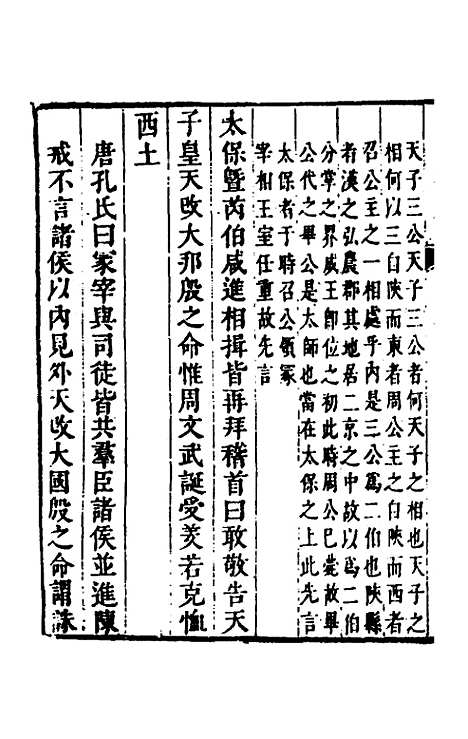 天子三公天子三公者何天子之相也天子之
相何以三自陝而東者周公主之自陝而西者
召公主之一相處乎内是三公爲二伯也陝縣
者漢之弘農郡其地居二京之中故以爲二伯
分掌之界成王卽位之初此時周公已薨故畢
公代之畢公是太師也當在太保之上此先言
太保者于時召公領冢
宰相王室任重故先言
太保暨芮伯咸進相揖皆再拜稽首曰敢敬告天
子皇天改大邦殷之命惟周文武誕受羑若克恤
西土
唐孔氏曰冢宰與司徒皆共羣臣諸侯並進陳
戒不言諸侯以内見外天改大國殷之命謂誅